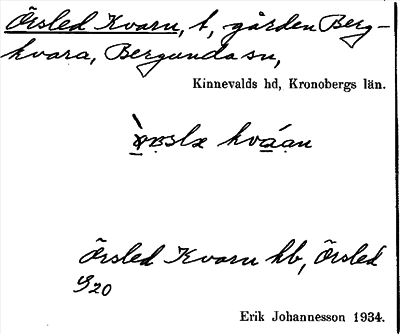 Örsled Kvarn, t, gården Berg-
kvara, Bergunda sn,
Kinnevalds hd, Kronobergs län.
kváan
Örsled Kvarn hb, Örsled
G20
Erik Johannesson 1934.